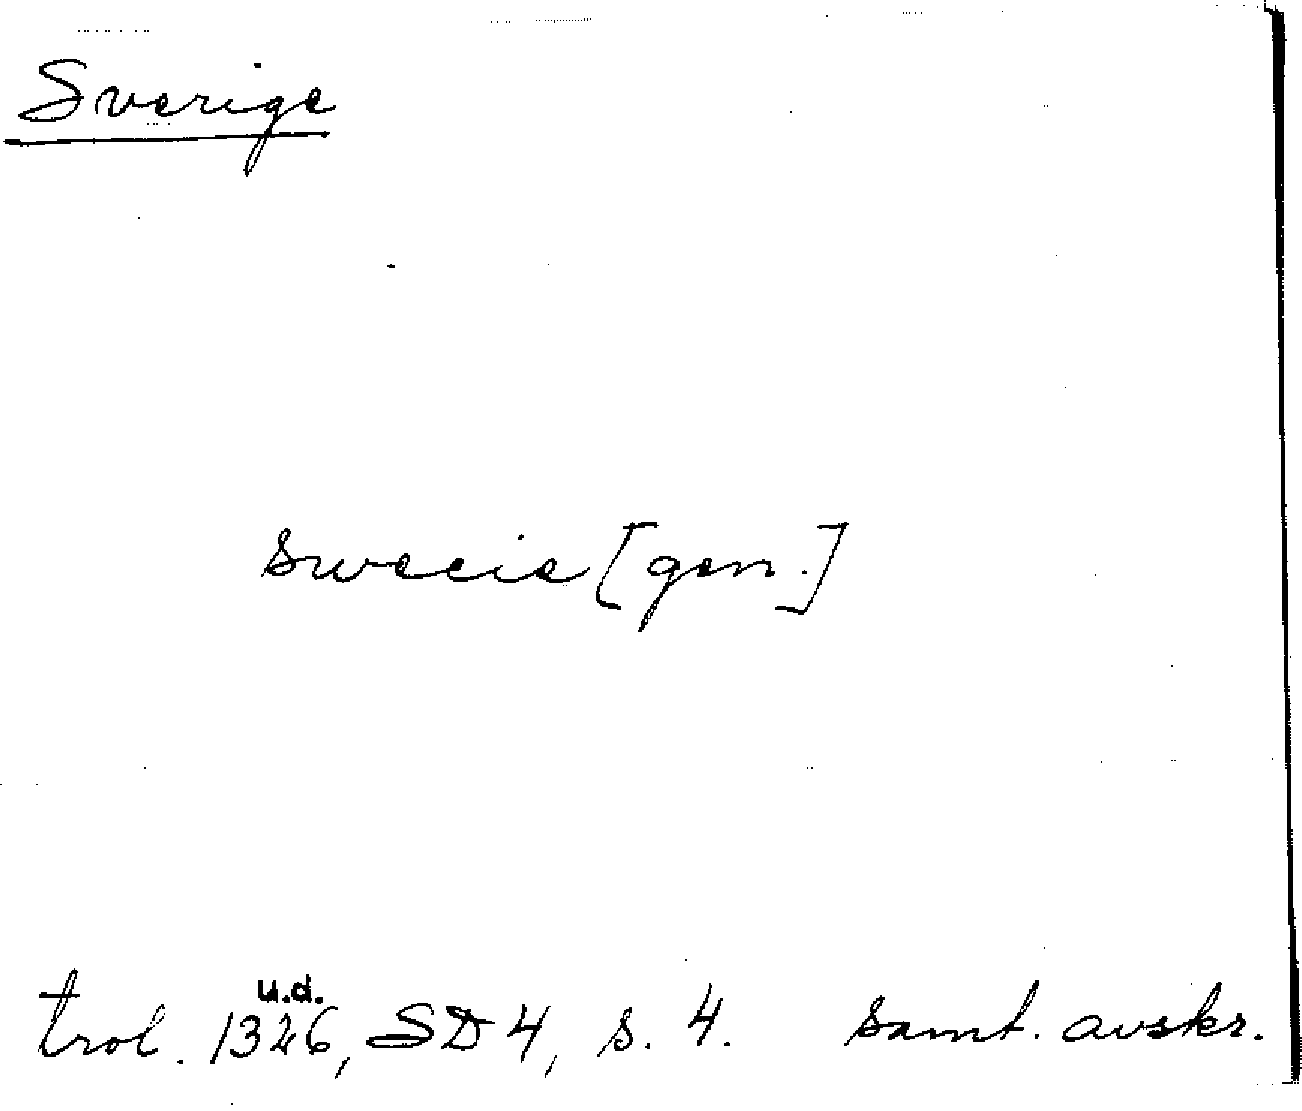 Sverige
swecie [gen.]
u.d.
trol. 1326, SD 4, s. 4. samt. avskr.